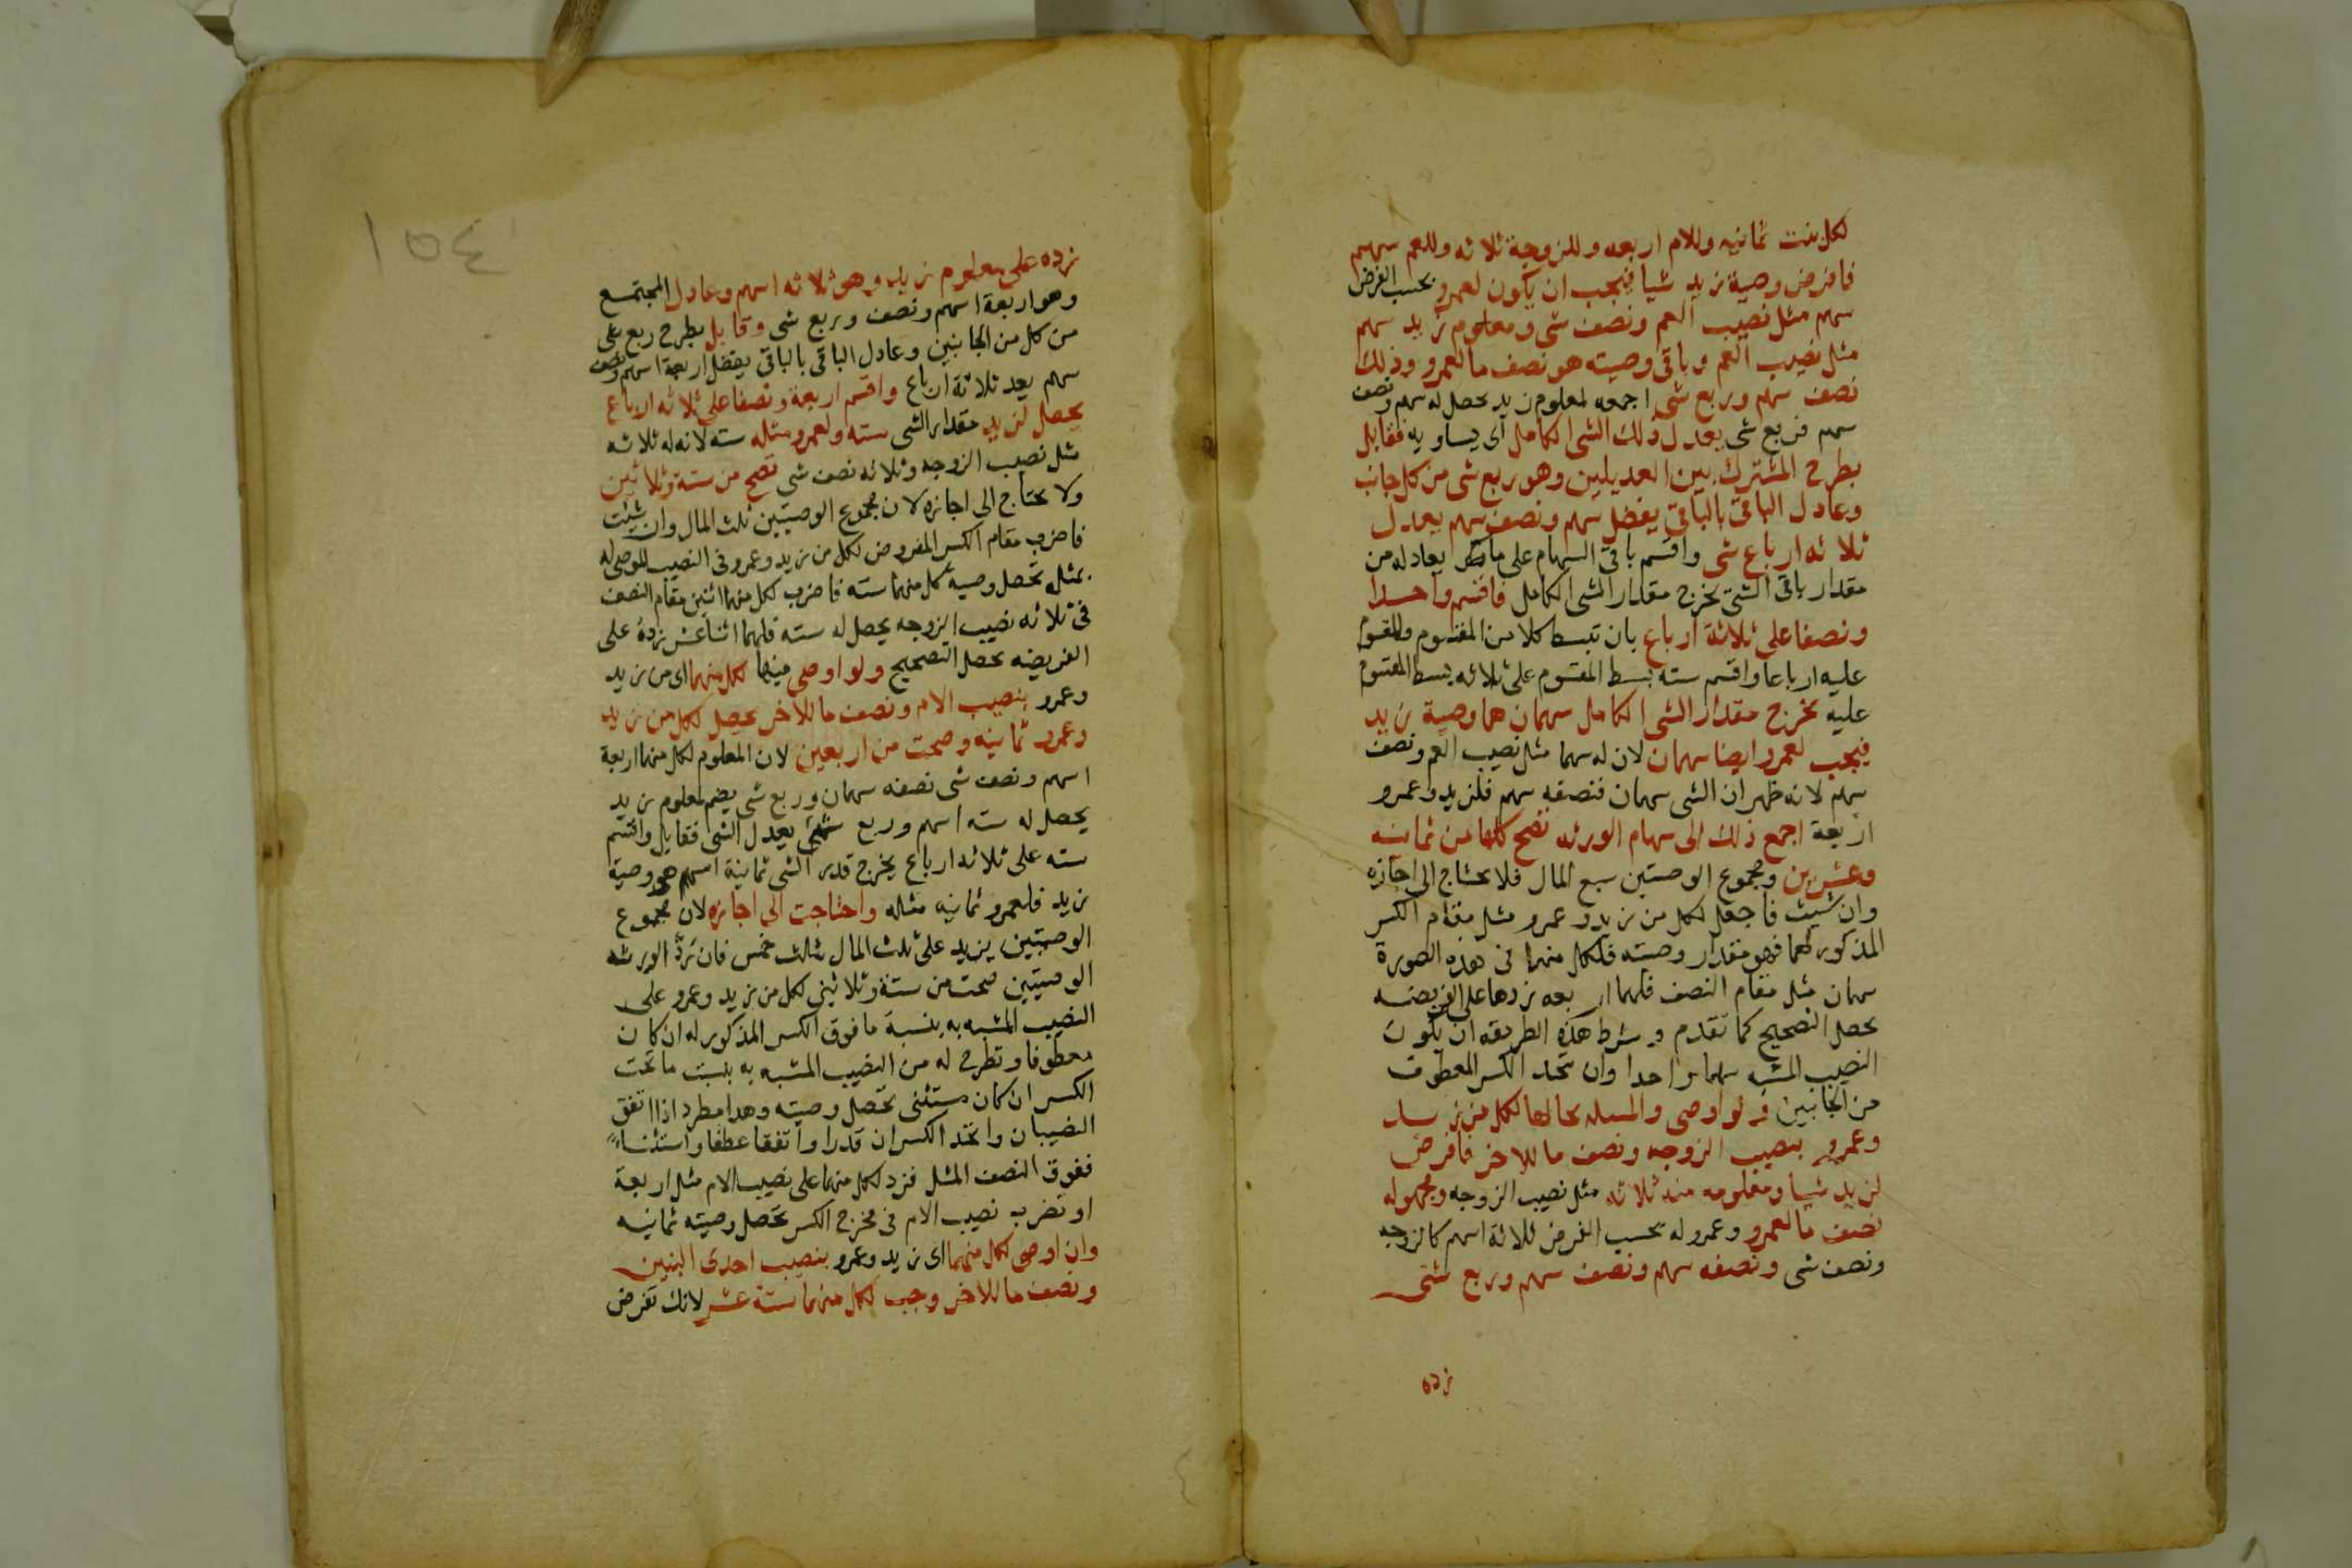 لكل بنت ثمانيه وللام اربعه وللزوجة ثلاثه وللعم سهم
فافرض وصية زيد شيا فيجب ان يكون لعمرو بحسب الفرض
سهم مثل نصيب العم ونصف شى ومعلوم زيد سهم
مثل نصيب العم وباقى وصيته هو نصف ما لعمرو وذلك
نصف سهم وربع شى اجمعه لمعلوم زيد يحصل له سهم ونصف
سهم وربع شى يعدل ذلك الشى الكامل اى يساويه فقابل
بطرح المشترك بين العديلين وهو ربع شى من كل جانب
وعادل الباقى بالباقى يفضل سهم ونصف سهم يعدل
ثلاثه ارباع شى واقسم باقى السهام على ما يعادله من
مقدار باقى الشى يخرج مقدار الشى الكامل فاقسم واحدا
ونصفا على ثلاثة ارباع بان تبسط كلا من المقسوم والمقسوم
عليه ارباعا واقسم سته بسط المقسوم على ثلاثه بسط المقسوم
عليه يخرج مقدار الشى الكامل سهمان هما وصية زيد
فيجب لعمرو ايضا سهمان لان له سهما مثل نصيب العم ونصف
سهم لانه ظهر ان الشى سهمان فنصفه سهم فلزيد وعمرو
اربعة اجمع ذلك الى سهام الورثه تصح كلها من ثمانيه
وعشرين ومجموع الوصيتين سبع المال فلا يحتاج الى اجازه
وان شيت فاجعل لكل من زيد وعمرو مثل مقام الكسر
المذكور لهما فهو مقدار وصيته فلكل منهما فى هذه الصورة
سهمان مثل مقام النصف فلهما اربعه زدها على الفريضه
يحصل التصحيح كما تقدم وشرط هذه الطريقه ان يكون
النصيب المشبه سهما واحدا وان يتحد الكسر المعطوف
من الجانبين ولو اوصى والمسله بحالها لكل من زيد
وعمرو بنصيب الزوجه ونصف ما للاخر فافرض
لزيد شيا ومعلومه منه ثلاثه مثل نصيب الزوجه ومجهوله
نصف ما لعمرو وعمرو له بحسب الفرض ثلاثة اسهم كالزوجه
ونصف شى ونصفه سهم ونصف سهم وربع شى
زده
١٥٤
زده على معلوم زيد وهو ثلاثه اسهم وعادل المجتمع
وهو اربعة اسهم ونصف وربع شى وقابل بطرح ربع شى
من كل من الجانبين وعادل الباقى بالباقى يفضل اربعة اسهم ونصف
سهم يعد ثلاثة ارباع واقسم اربعة ونصفا على ثلاثه ارباع
يحصل لزيد مقدار الشى سته ولعمرو مثله سته لانه له ثلاثه
مثل نصيب الزوجه وثلاثه نصف شى تصح من ستة وثلاثين
ولا يحتاج الى اجازه لان مجموع الوصيتين ثلث المال وان شيت
فاضرب مقام الكسر المفروض لكل من زيد وعمرو فى النصيب الموصى له
بمثله تحصل وصية كل منهما سته فاضرب لكل منهما اثنين مقام النصف
فى ثلاثه نصيب الزوجه يحصل له سته فلهما اثنا عشر زده على
الفريضه يحصل التصحيح ولو اوصى فيها لكل منهما اى من زيد
وعمرو بنصيب الام ونصف ما للاخر يحصل لكل من زيد
وعمرو ثمانيه وصحت من اربعين لان المعلوم لكل منهما اربعة
اسهم ونصف شى نصفه سهمان وربع شى يضم لمعلوم زيد
يحصل له سته اسهم وربع شى يعدل الشى فقابل واقسم
سته على ثلاثه ارباع يخرج قدر الشى ثمانية اسهم هو وصية
زيد فلعمرو ثمانيه مثله واحتاجت الى اجازه لان مجموع
الوصيتين يزيد على ثلث المال بثلث خمس فان رد الورثه
الوصيتين صحت من ستة وثلاثين لكل من زيد وعمرو على
النصيب المشبه به بنسبة ما فوق الكسر المذكور له ان كان
معطوفا وتطرح له من النصيب المشبه به بنسبت ما تحت
الكسر ان كان مستثنى تحصل وصيته وهدا مطرد اذا اتفق
النصيبان واتحد الكسران قدرا واتفقا عطفا واستثناء
ففوق النصف المثل فزد لكل منهما على نصيب الام مثل اربعة
او تضرب نصيب الام فى مخرج الكسر تحصل وصيته ثمانيه
وان اوصى لكل منهما اى زيد وعمرو بنصيب احدى البنين
ونصف ما للاخر وجب لكل منهما ستة عشر لانك تفرض